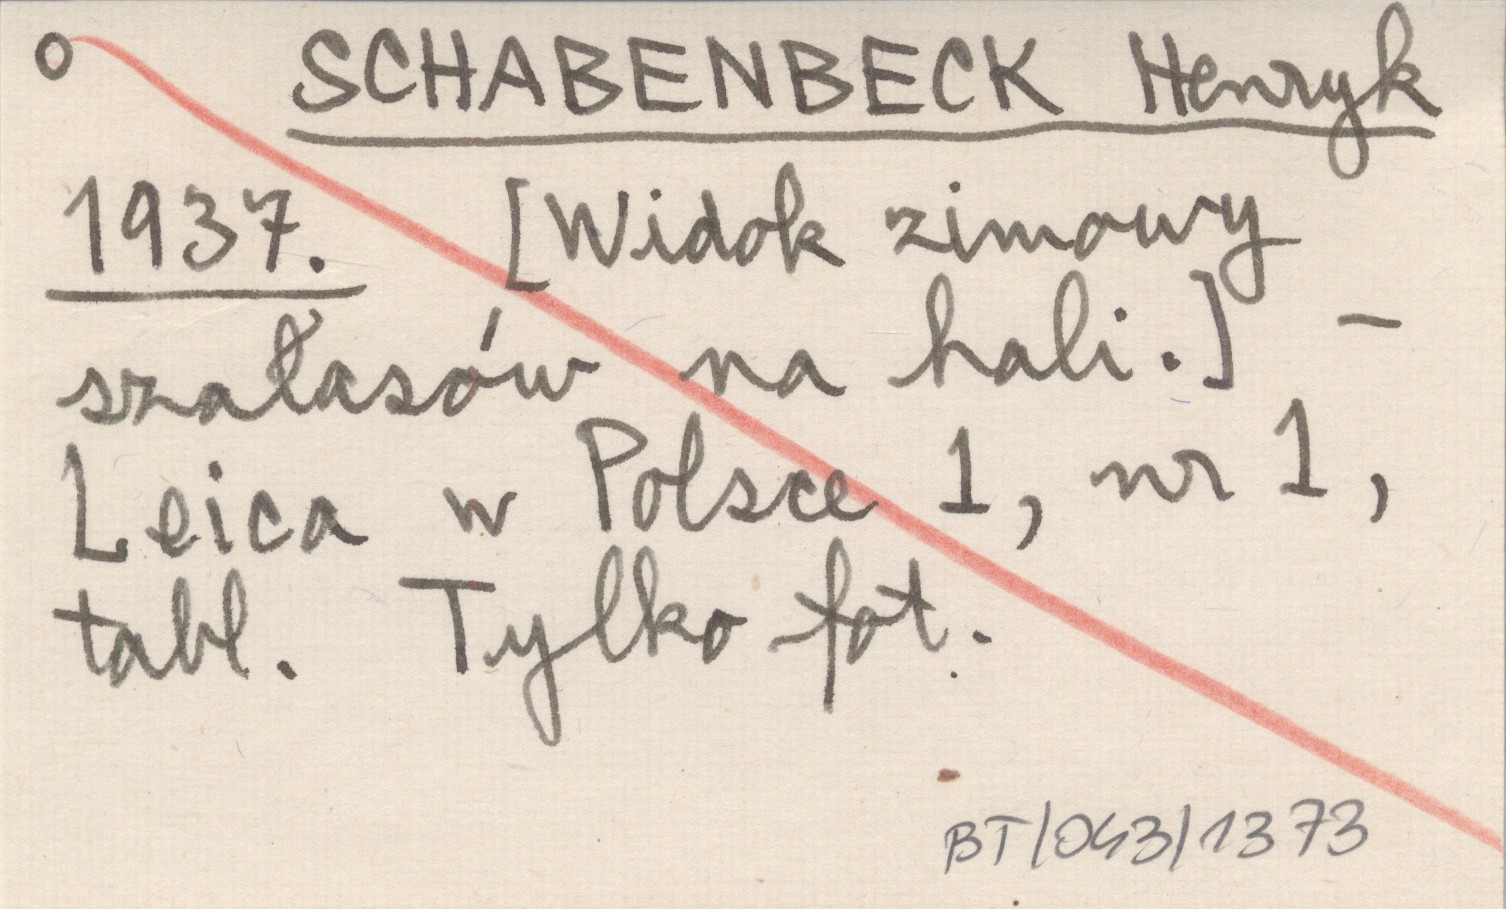 o SCHABENBECK Henryk
1937. [Widok zimowy
szałasów na hali.] –
Leica w Polsce 1, nr 1,
tabl. Tylko fot.
BT/043/1373